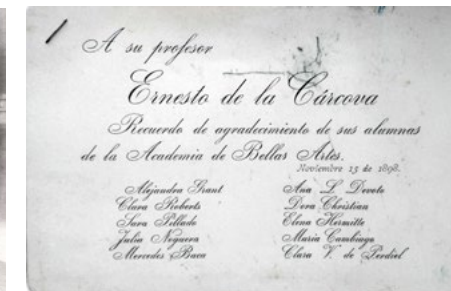 A su profesor
Ernesto de la Cárcova
Recuerdo de agradecimiento de sus alumnas
de la Academia de Bellas Artes.
Noviembre 15 de 1898.
Alejandra Grant
Clara Roberts
Sara Pillado
Julia Noguera
Mercedes Baca
Ana L. Devoto
Dora Christian
Elena Hermitte
Maria Cambiaga
Clara V. de